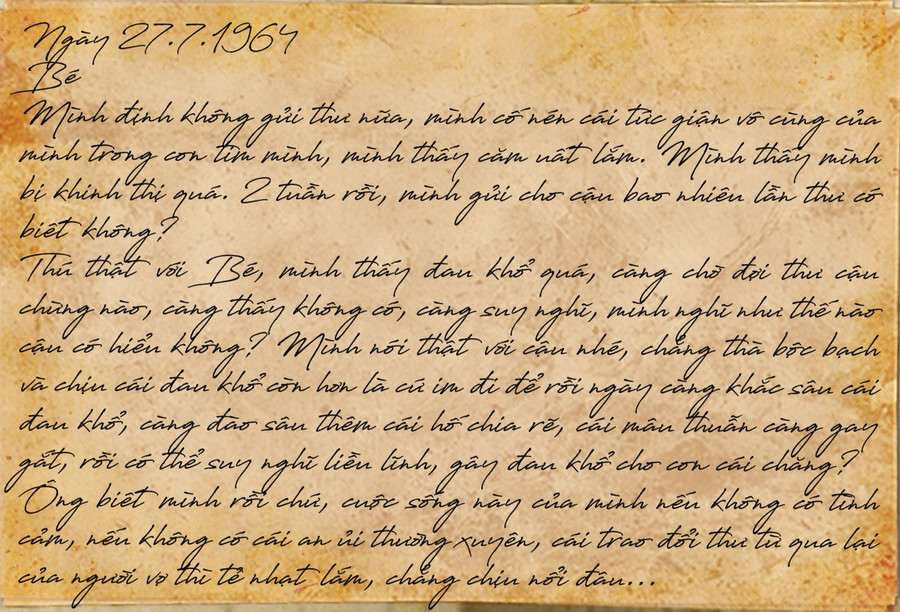 Ngày 27.7.1964
Bé
Mình định không gửi thư nữa, mình cố nén cái tức giận vô cùng của
mình trong con tim mình, mình thấy căm uất lắm. Mình thấy mình
bị khinh thị quá. 2 tuần rồi, mình gửi cho cậu bao nhiêu lần thư có
biết không?
Thú thật với Bé, mình thấy đau khổ quá, càng chờ đợi thư cậu
chừng nào, càng thấy không có, càng suy nghĩ, mình nghĩ như thế nào
cậu có hiểu không? Mình nói thật với cậu nhé, chẳng thà bộc bạch
và chịu cái đau khổ còn hơn là cú im đi để rồi ngày càng khắc sâu cái
đau khổ, càng đào sâu thêm cái hố chia rẽ, cái mâu thuẫn càng gay
gắt, rồi có thể suy nghĩ liều lĩnh, gây đau khổ cho con cái chăng?
Ông biết mình rồi chứ, cuộc sống này của mình nếu không có tình
cảm, nếu không có cái an ủi thường xuyên, cái trao đổi thư từ qua lại
của người vợ thì tẻ nhạt lắm, chẳng chịu nổi đâu...